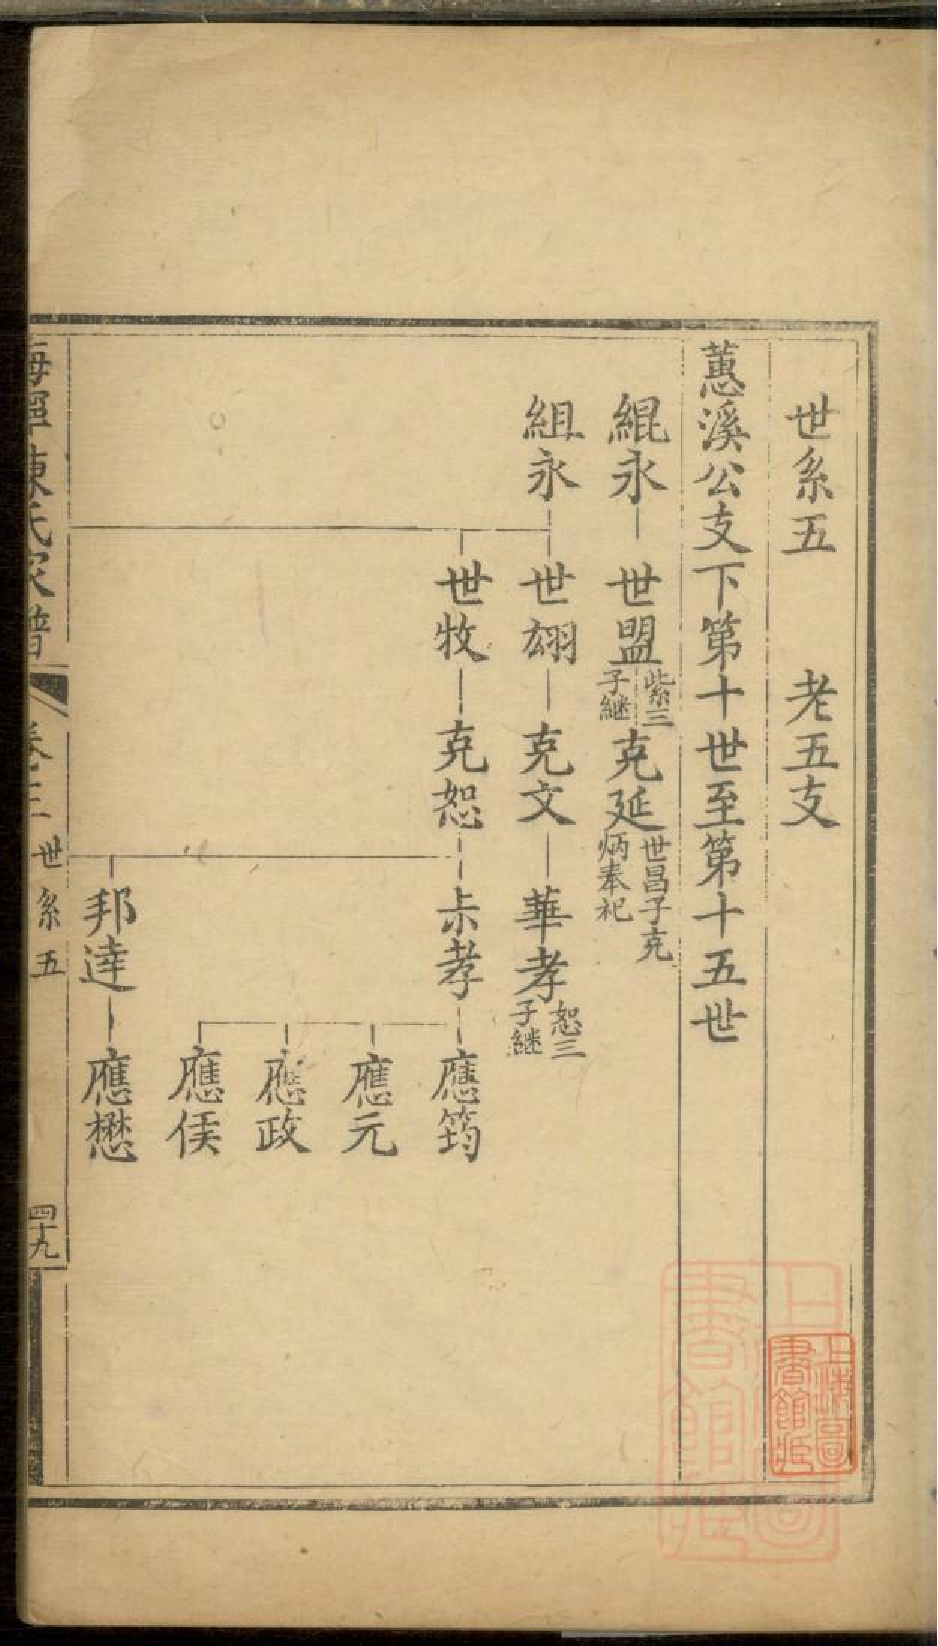 世系五 老五支
蕙溪公支下第十世至第十五世
緄永 世盟 紫三子繼 克延 世昌子克炳奉祀
組永 世翃 克文 華孝 恕三子繼
世牧 克恕 尗孝 應筠
應元
應政
應侯
邦達 應懋
海寧陳氏家譜 卷三 世系五 四十九
上海圖書館藏